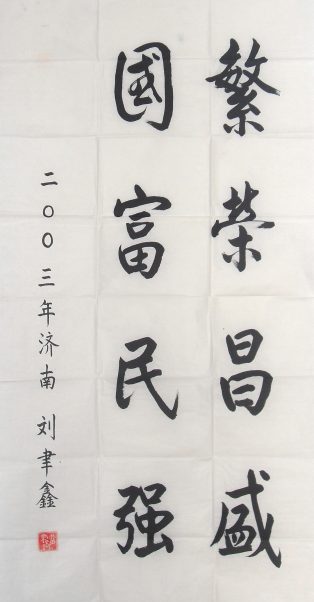 繁荣昌盛
國富民强
二〇〇三年济南 刘聿鑫